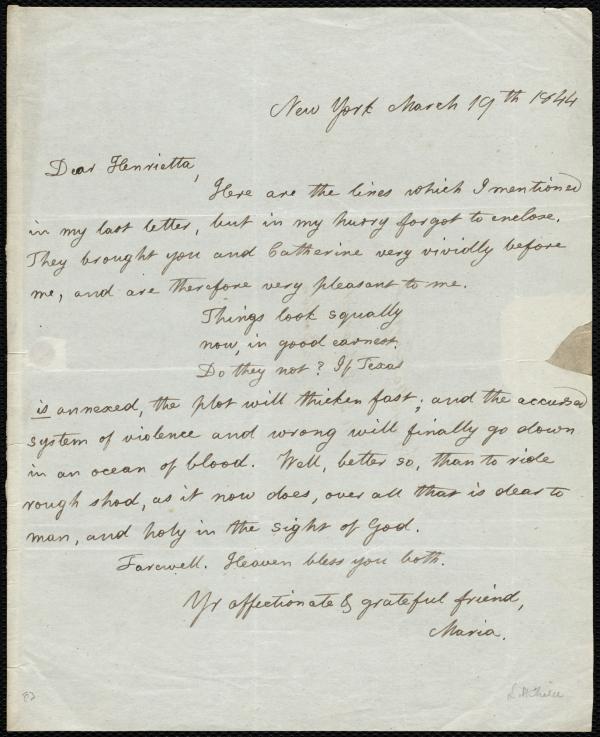 New York March 19th 1844
Dear Henrietta,
Here are the lines which I mentioned
in my last letter, but in my hurry forgot to enclose.
They brought you and Catherine very vividly before
me, and are therefore very pleasant to me.
Things look squally
now, in good earnest.
Do they not? If Texas
is annexed, the plot will thicken fast; and the accursed
system of violence and wrong will finally go down
in an ocean of blood. Well, better so, than to ride
rough shod, as it now does, over all that is dear to
man, and holy in the sight of God.
Farewell. Heaven bless you both.
Yr affectionate & grateful friend,
Maria.